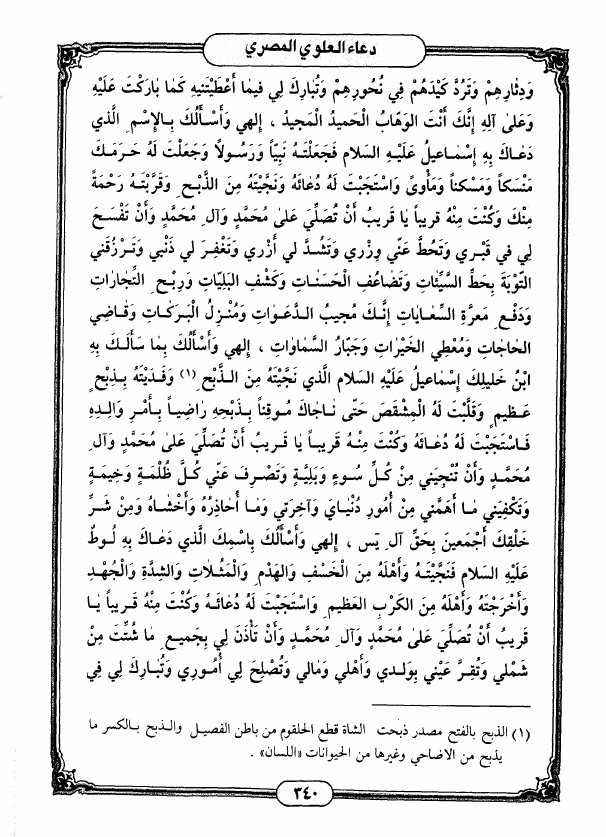 دعاء العلوي المصري
وَدِثارِهِمْ وَتَرُدَّ كَيْدَهُمْ فِي نُحُورِهِمْ وَتُبارِكَ لِي فيما أَعْطَيْتَنيهِ كَما بارَكْتَ عَلَيْهِ
وَعَلىٰ آلِهِ إِنَّكَ أَنْتَ الوَهّابُ الْحَميدُ الْمَجيدُ ، إِلهي وَأَسْأَلُكَ بِالإِسْمِ الَّذي
دَعاكَ بِهِ إِسْماعيلُ عَلَيْهِ السَّلام فَجَعَلْتَهُ نَبِيّاً وَرَسُولاً وَجَعَلْتَ لَهُ حَرَمَكَ
مَنْسَكاً وَمَسْكَناً وَمَأْوىً وَاسْتَجَبْتَ لَهُ دُعائَهُ وَنَجَّيْتَهُ مِنَ الذَّبْحِ وَقَرَّبْتَهُ رَحْمَةً
مِنْكَ وَكُنْتَ مِنْهُ قَريباً يا قَريبُ أَنْ تُصَلِّيَ عَلىٰ مُحَمَّدٍ وَآلِ مُحَمَّدٍ وَأَنْ تَفْسَحَ
لِي فِي قَبْرِي وَتَحُطَّ عَنّي وِزْرِي وَتَشُدَّ لي أَزْرِي وَتَغْفِرَ لي ذَنْبي وَتَرْزُقَني
التَّوْبَةَ بِحَطِّ السَّيِّئاتِ وَتَضاعُفِ الْحَسَناتِ وَكَشْفِ البَلِيّاتِ وَرِبْحِ التِّجاراتِ
وَدَفْعِ مَعَرَّةِ السِّعاياتِ إِنَّكَ مُجيبُ الدَّعَواتِ وَمُنْزِلُ الْبَرَكاتِ وَقاضِي
الحاجاتِ وَمُعْطِي الْخَيْراتِ وَجَبّارُ السَّماواتِ ، إِلهي وَأَسْأَلُكَ بِما سَأَلَكَ بِهِ
ابْنُ خَليلِكَ إِسْماعيلُ عَلَيْهِ السَّلام الَّذي نَجَّيْتَهُ مِنَ الذَّبْحِ (١) وَفَدَيْتَهُ بِذِبْحٍ
عَظيمٍ وَقَلَّبْتَ لَهُ الْمِشْقَصَ حَتّى ناجاكَ مُوقِناً بِذَبْحِهِ راضِياً بِأَمْرِ والِدِهِ
فَاسْتَجَبْتَ لَهُ دُعائَهُ وَكُنْتَ مِنْهُ قَريباً يا قَريبُ أَنْ تُصَلِّيَ عَلىٰ مُحَمَّدٍ وَآلِ
مُحَمَّدٍ وَأَنْ تُنْجِيَني مِنْ كُلِّ سُوءٍ وَبَلِيَّةٍ وَتَصْرِفَ عَنّي كُلَّ ظُلْمَةٍ وَخيمَةٍ
وَتَكْفِيَني ما أَهَمَّني مِنْ أُمُورِ دُنْيايَ وَآخِرَتي وَما أُحاذِرُهُ وَأَخْشاهُ وَمِنْ شَرِّ
خَلْقِكَ أَجْمَعينَ بِحَقِّ آلِ يٰسَ ، إِلهي وَأَسْأَلُكَ بِاسْمِكَ الَّذي دَعاكَ بِهِ لُوطٌ
عَلَيْهِ السَّلام فَنَجَّيْتَهُ وَأَهْلَهُ مِنَ الْخَسْفِ وَالهَدْمِ وَالْمَثُلاتِ وَالشِّدَّةِ وَالْجُهْدِ
وَأَخْرَجْتَهُ وَأَهْلَهُ مِنَ الكَرْبِ العَظيمِ وَاسْتَجَبْتَ لَهُ دُعائَهُ وَكُنْتَ مِنْهُ قَريباً يا
قَريبُ أَنْ تُصَلِّيَ عَلىٰ مُحَمَّدٍ وَآلِ مُحَمَّدٍ وَأَنْ تَأْذَنَ لي بِجَميعِ ما شُتِّتَ مِنْ
شَمْلي وَتُقِرَّ عَيْني بِوَلَدي وَأَهْلي وَمالي وَتُصْلِحَ لي أُمُوري وَتُبارِكَ لي فِي
(١) الذبح بالفتح مصدر ذبحت الشاة قطع الحلقوم من باطن الفصيل والذبح بالكسر ما
يذبح من الاضاحي وغيرها من الحيوانات «اللسان» .
٣٤٠